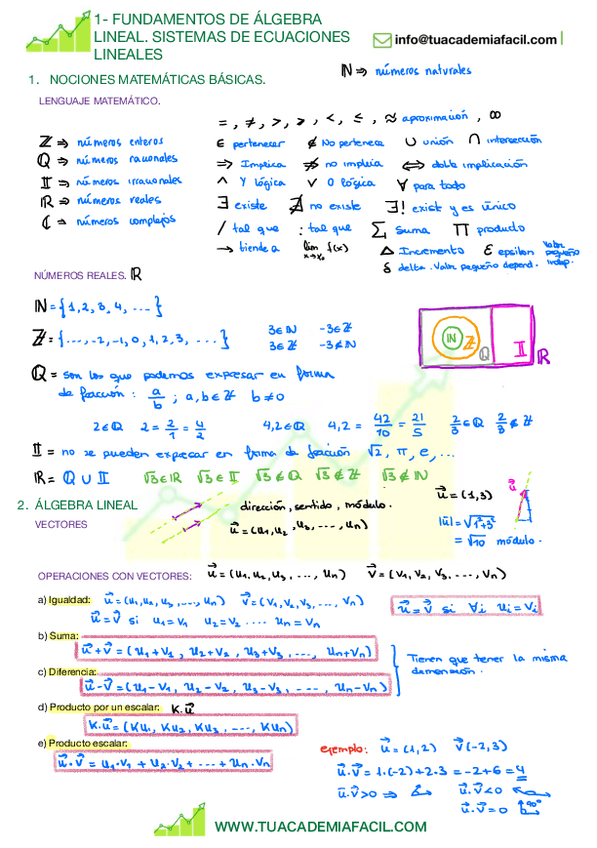 1- FUNDAMENTOS DE ÁLGEBRA
LINEAL. SISTEMAS DE ECUACIONES
LINEALES
info@tuacademiafacil.com
1. NOCIONES MATEMÁTICAS BÁSICAS.
ℕ ⇒ números naturales
LENGUAJE MATEMÁTICO.
= , ≠ , > , ⩾ , < , ≤ , ≈ aproximación , ∞
ℤ ⇒ números enteros
∈ pertenecer ∉ No pertenece ∪ unión ∩ intersección
ℚ ⇒ números racionales
⇒ Implica ⇏ no implica ⇔ doble implicación
𝕀 ⇒ números irracionales
^ Y lógica ∨ O lógica ∀ para todo
ℝ ⇒ números reales
∃ existe ∄ no existe ∃! exist y es único
ℂ ⇒ números complejos
/ tal que : tal que Σ Suma Π producto
→ tiende a lim f(x) x→x₀ Δ Incremento ε epsilon Valor pequeño indep.
δ delta. Valor pequeño depend.
NÚMEROS REALES. ℝ
ℕ = {1, 2, 3, 4, ...}
ℤ = {..., -2, -1, 0, 1, 2, 3, ...} 3∈ℕ -3∈ℤ
3∈ℤ -3∉ℕ
ℕ ℤ ℚ 𝕀 ℝ
ℚ = son los que podemos expresar en forma
de fracción : a/b ; a, b ∈ ℤ b ≠ 0
2∈ℚ 2 = 2/1 = 4/2 4,2∈ℚ 4,2 = 42/10 = 21/5 2/3 ∈ ℚ 2/3 ∉ ℤ
𝕀 = no se pueden expresar en forma de fracción √2, π, e, ...
ℝ = ℚ ∪ 𝕀 √3∈ℝ √3∈𝕀 √3∉ℚ √3∉ℤ √3∉ℕ
2. ÁLGEBRA LINEAL
VECTORES
dirección, sentido, módulo.
u⃗ = (u₁, u₂, u₃, ..., uₙ)
u⃗ = (1,3)
u⃗
|u⃗| = √1²+3²
= √10 módulo.
OPERACIONES CON VECTORES: u⃗ = (u₁, u₂, u₃, ..., uₙ) v⃗ = (v₁, v₂, v₃, ..., vₙ)
a) Igualdad: u⃗ = (u₁, u₂, u₃, ..., uₙ) v⃗ = (v₁, v₂, v₃, ..., vₙ)
u⃗ = v⃗ si u₁ = v₁ u₂ = v₂ ... uₙ = vₙ
u⃗ = v⃗ si ∀i uᵢ = vᵢ
b) Suma:
u⃗ + v⃗ = (u₁+v₁, u₂+v₂, u₃+v₃, ..., uₙ+vₙ)
Tienen que tener la misma
dimensión.
c) Diferencia:
u⃗ - v⃗ = (u₁-v₁, u₂-v₂, u₃-v₃, ..., uₙ-vₙ)
d) Producto por un escalar: K.u⃗
K.u⃗ = (Ku₁, Ku₂, Ku₃, ..., Kuₙ)
e) Producto escalar:
u⃗.v⃗ = u₁.v₁ + u₂.v₂ + ... + uₙ.vₙ
ejemplo: u⃗ = (1,2) v⃗(-2,3)
u⃗.v⃗ = 1.(-2)+2.3 = -2+6 = 4
u⃗.v⃗ > 0 ⇒ u⃗.v⃗ < 0
u⃗.v⃗ = 0 90°
WWW.TUACADEMIAFACIL.COM